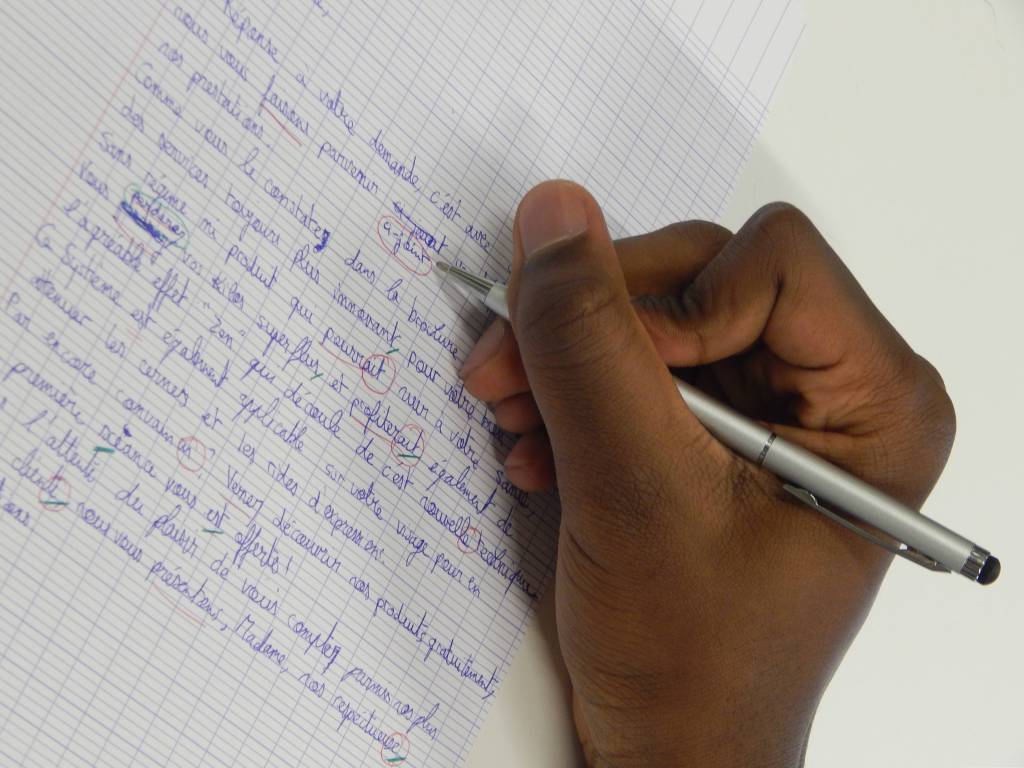 Réponse à votre demande, c'est avec
nous vous faisons parvenir ci-joint
nos prestations.
Comme vous le constatez dans la brochure
des services toujours plus innovant pour votre bien
Sans régime ni produit qui pourrait nuir à votre santé
Vous perdrez vos kilos superflux, et profiterait également de
l'agréable effet "Zen" qui découle de c'est nouvelle techniques
Ce Système est également applicable sur votre visage pour en
atténuer les cernes et les rides d'expressions.
Pas encore convaincu ? Venez découvrir nos produits gratuitement,
première séance vous est offerte !
l'attente du plaisir de vous comptez parmis nos plus
clients nous vous présentons, Madame, nos respectueuse
ons